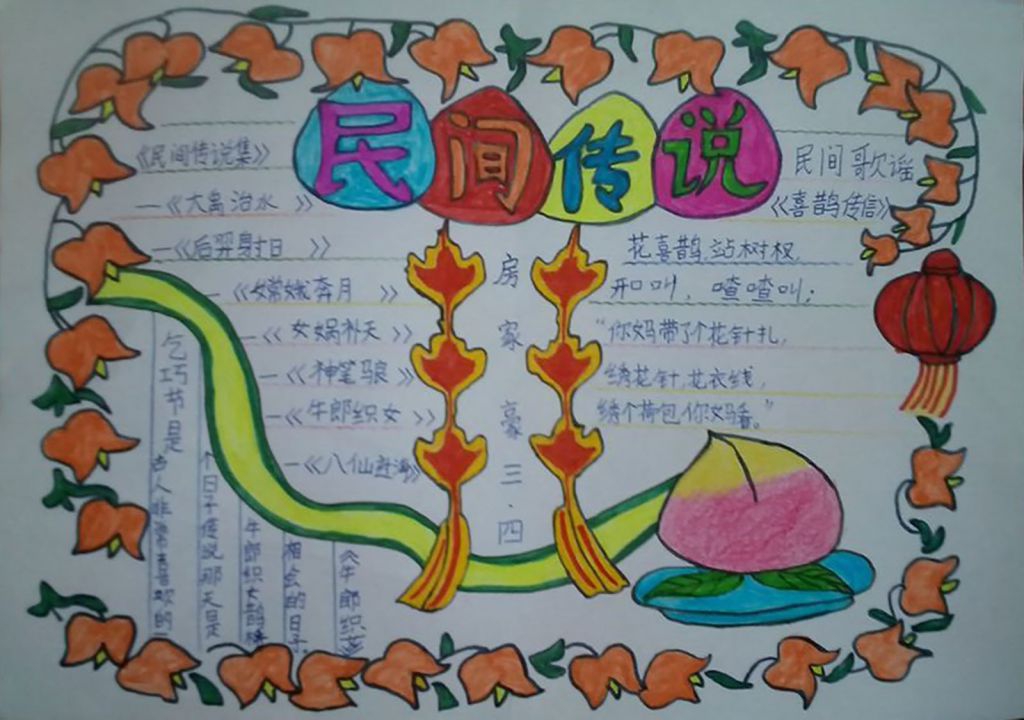 民间传说
《民间传说集》
—《大禹治水》
—《后羿射日》
—《嫦娥奔月》
—《女娲补天》
—《神笔马良》
—《牛郎织女》
—《八仙过海》
房家豪三.四
民间歌谣
《喜鹊传信》
花喜鹊,站树杈,
开口叫,喳喳叫;
"你妈带了个花针扎,
绣花针,花衣线,
绣个荷包你妈看。"
乞巧节是
古人非常喜欢的一
个日子传说那天是
牛郎织女鹊桥
相会的日子。
《牛郎织女》